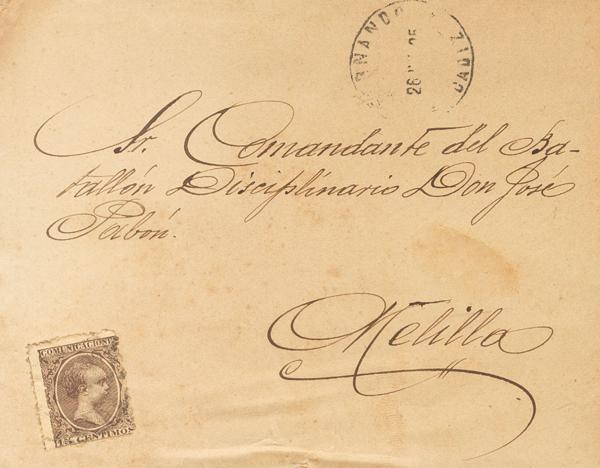 26 95
CADIZ
Sr. Comandante del Ba-
tallón Disciplinario Don José
Pabón.
Melilla
COMUNICACIONES
15 CENTIMOS